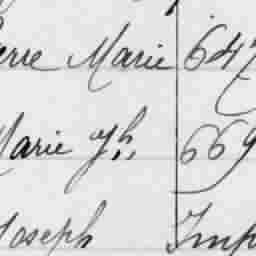 erre Marie 647
Marie Jh. 669
Joseph Imp